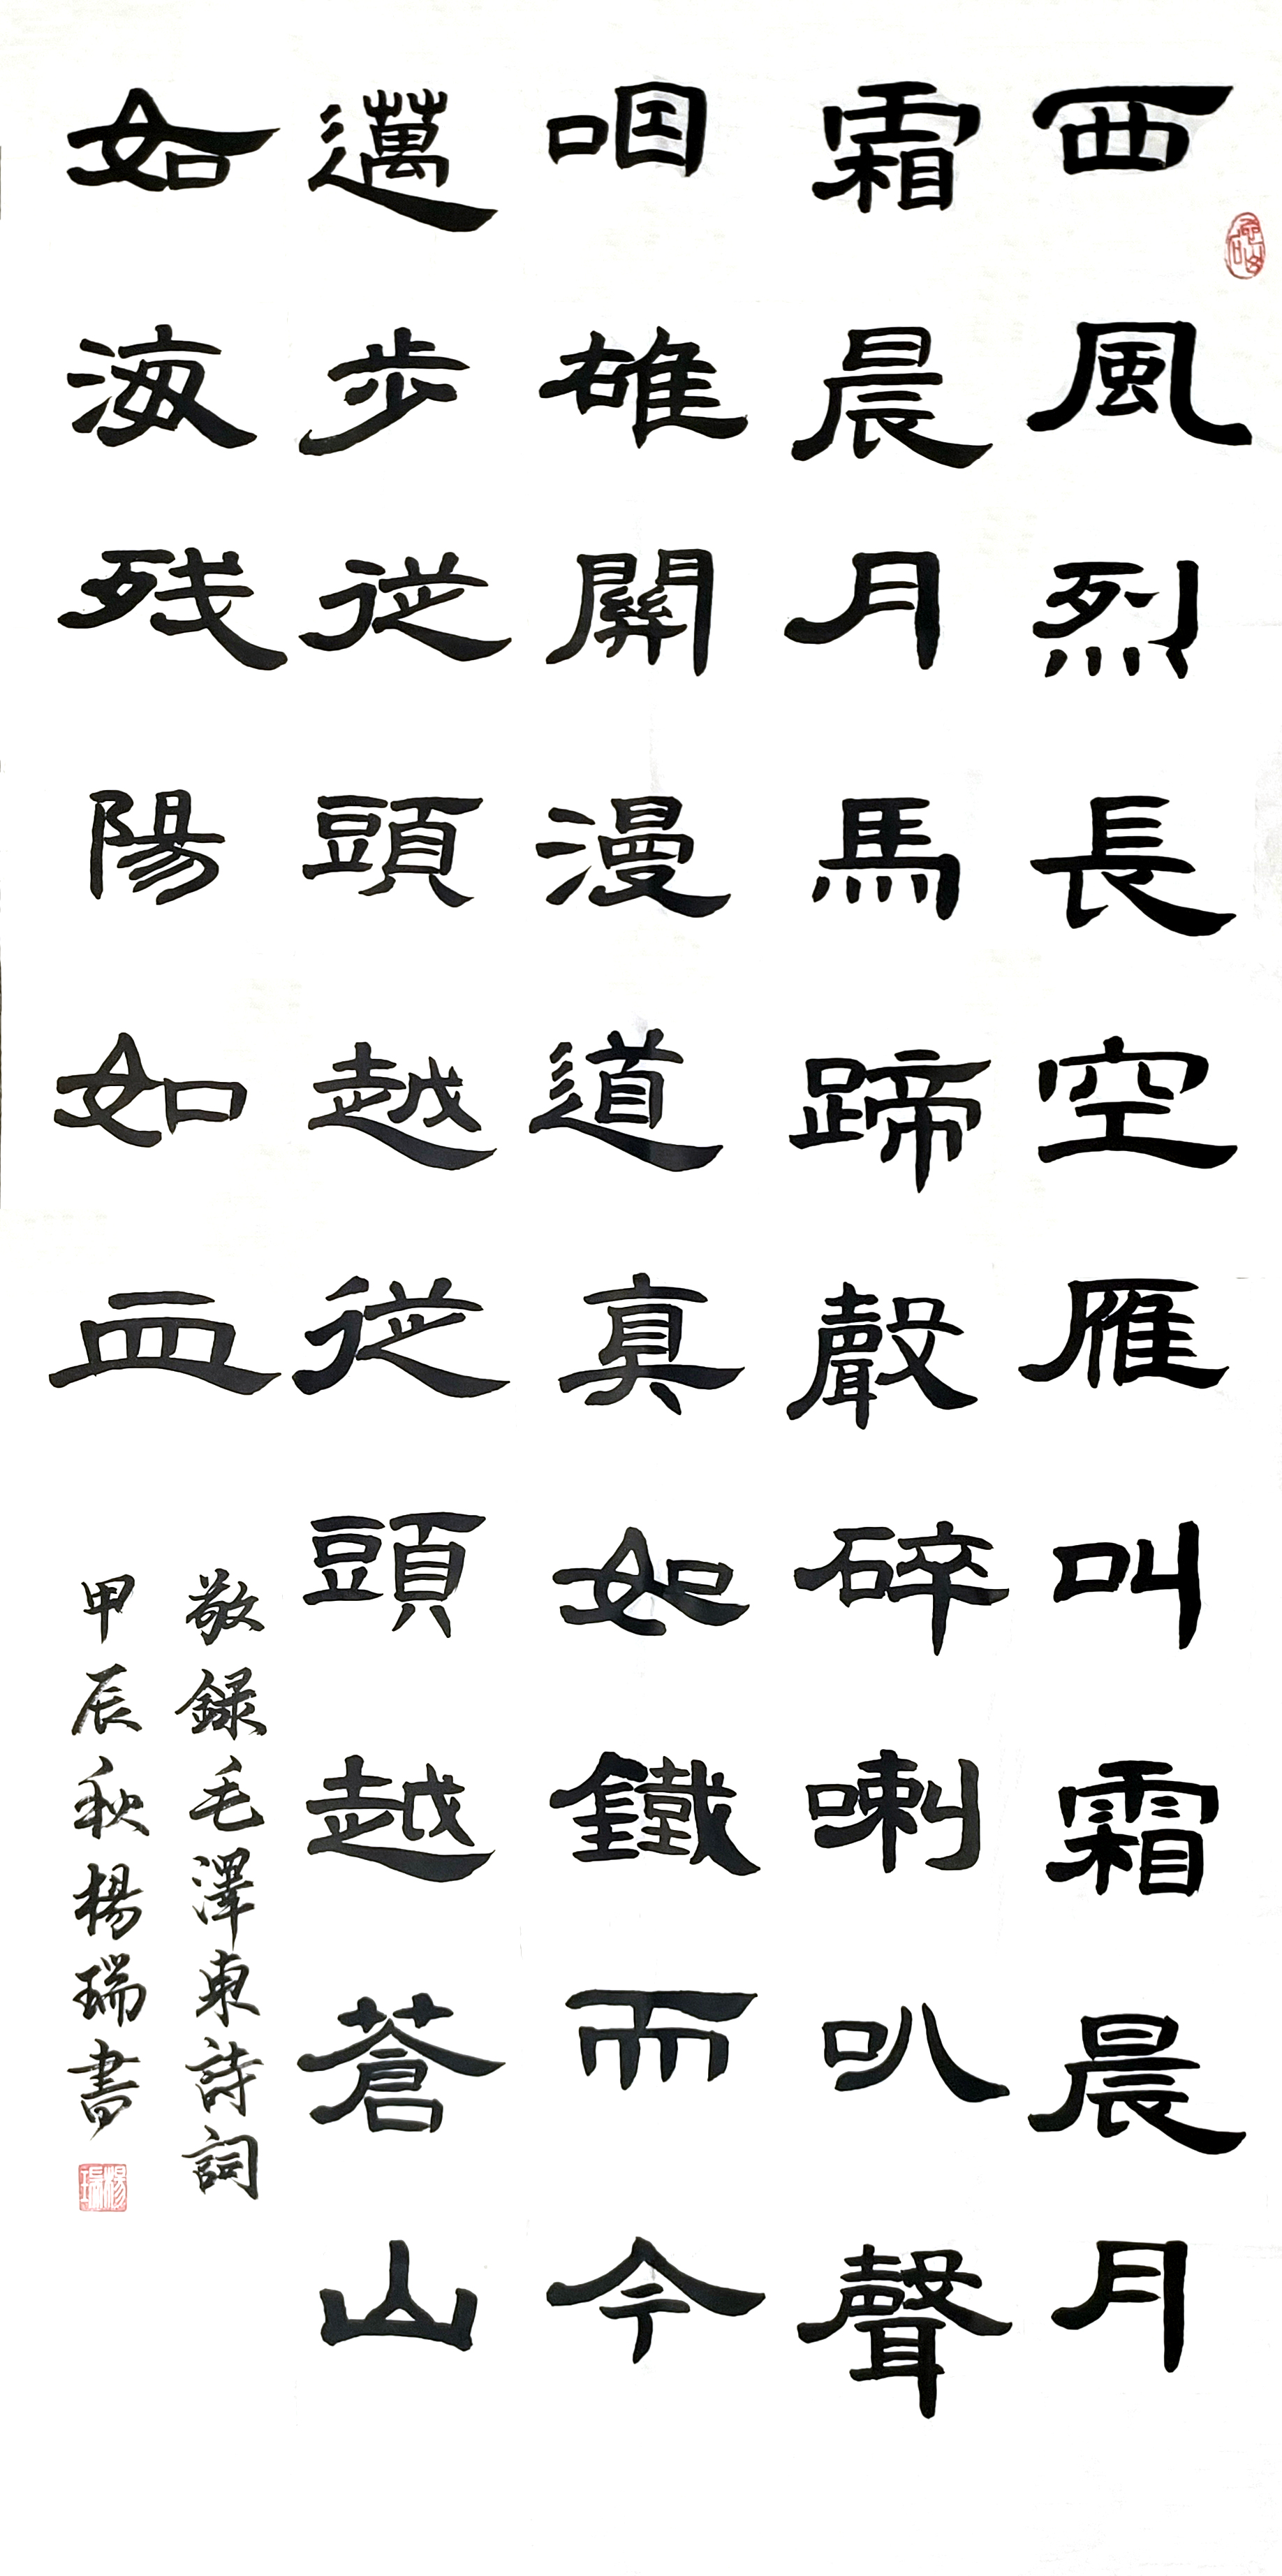 西風烈長空雁叫霜晨月
霜晨月馬蹄聲碎喇叭聲
咽雄關漫道真如鐵而今
邁步從頭越從頭越蒼山
如海残陽如血
敬録毛澤東詩詞
甲辰秋楊瑞書
楊瑞